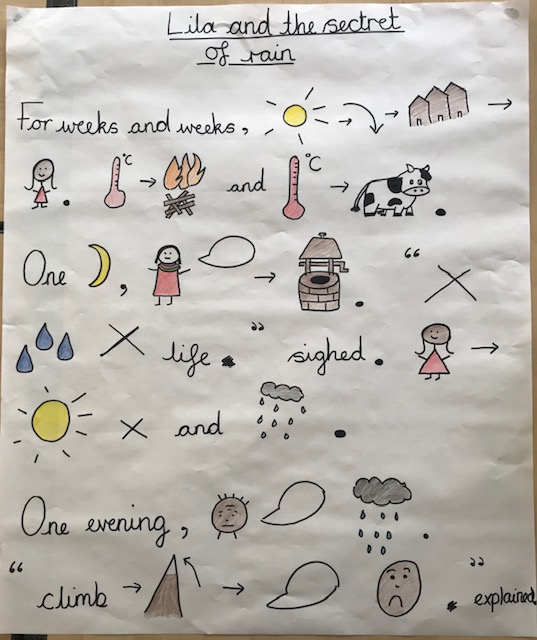 Lila and the sectret
of rain
For weeks and weeks,
. °C and °C .
One , . "
life . " sighed .
and .
One evening, .
" climb . " explained.